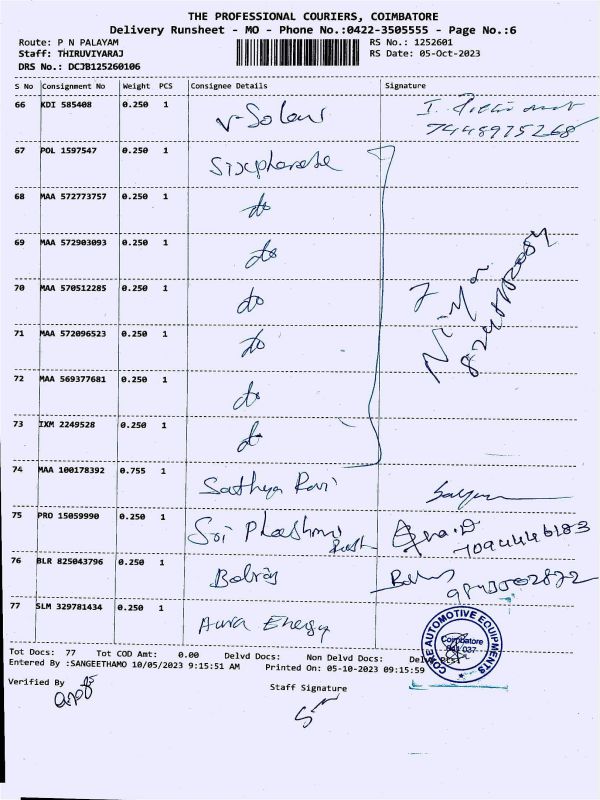 THE PROFESSIONAL COURIERS, COIMBATORE
Delivery Runsheet - MO - Phone No.:0422-3505555 - Page No.:6
Route: P N PALAYAM RS No.: 1252601
Staff: THIRUVIYARAJ RS Date: 05-Oct-2023
DRS No.: DCJB125260106
S No Consignment No Weight PCS Consignee Details Signature
66 KDI 585408 0.250 1
7448975268
67 POL 1597547 0.250 1
68 MAA 572773757 0.250 1 do
69 MAA 572903093 0.250 1 do
70 MAA 570512285 0.250 1 do
71 MAA 572096523 0.250 1 do
72 MAA 569377681 0.250 1 do
73 IXM 2249528 0.250 1 do
74 MAA 100178392 0.755 1 Sathya Ravi
75 PRO 15059990 0.250 1 Sri
7094446183
76 BLR 825043796 0.250 1 Balraj
77 SLM 329781434 0.250 1 Aura Energy
AUTOMOTIVE EQUIPMENTS
Coimbatore
Tot Docs: 77 Tot COD Amt: 0.00 Delvd Docs: Non Delvd Docs:
Entered By :SANGEETHAMO 10/05/2023 9:15:51 AM Printed On: 05-10-2023 09:15:59
Verified By
Staff Signature